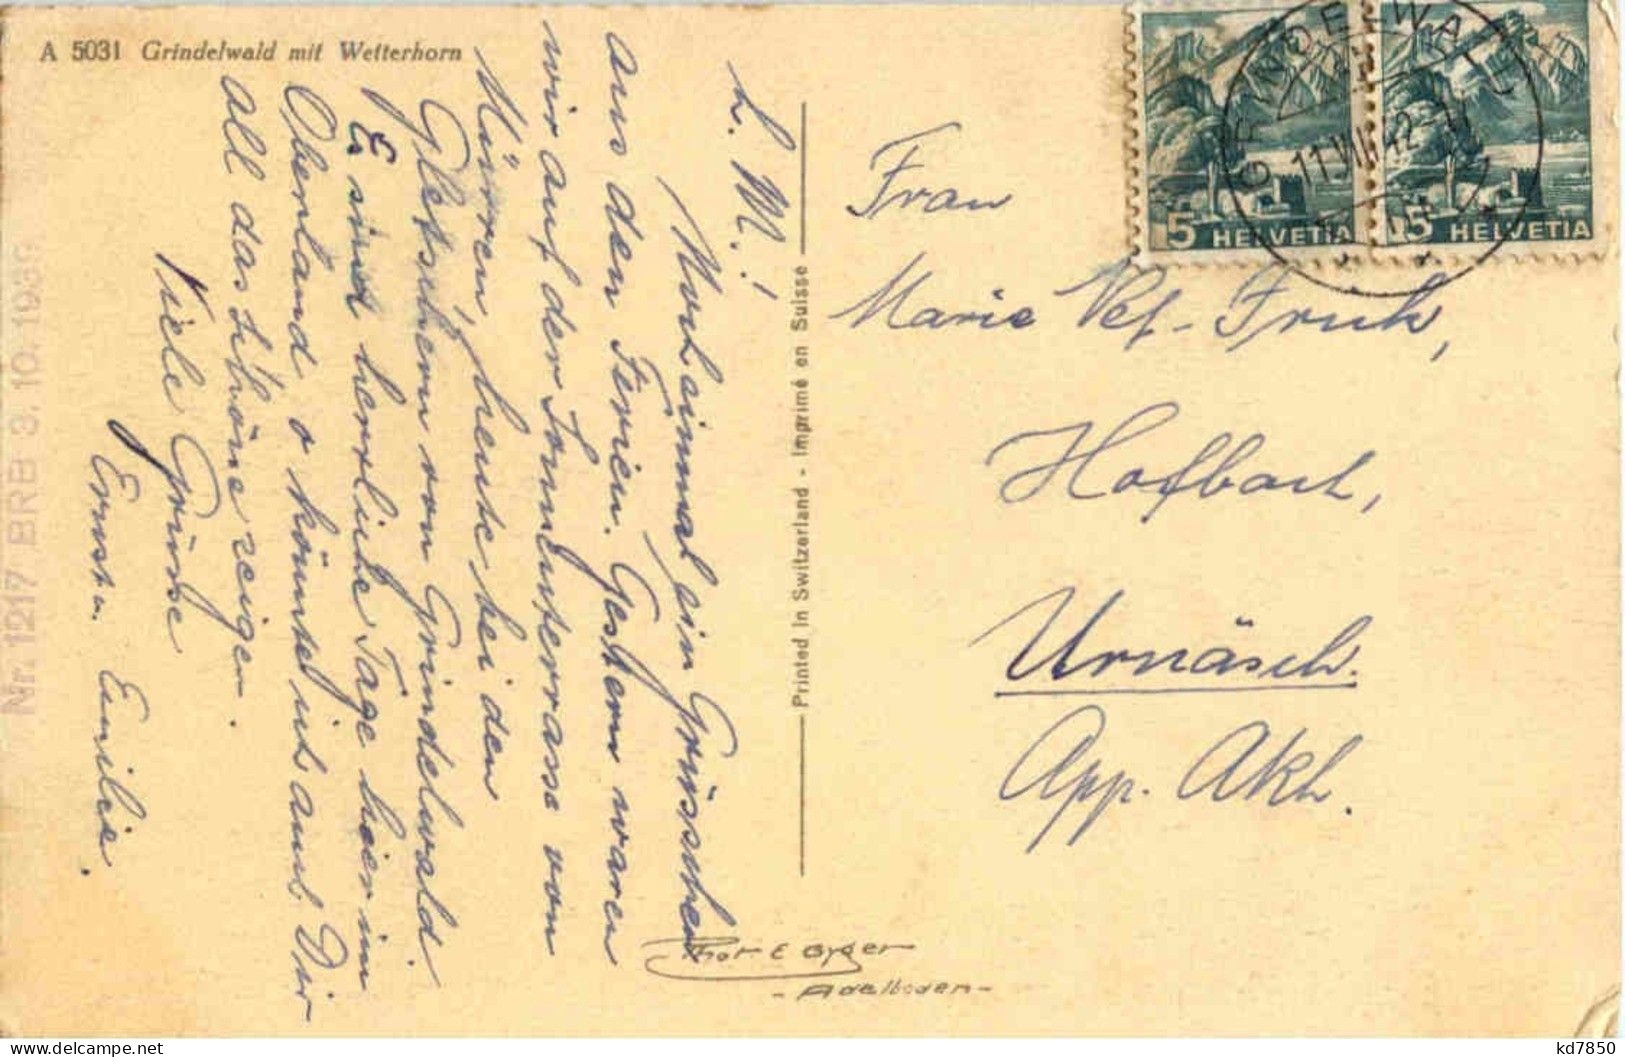 A 5031 Grindelwald mit Wetterhorn
L. M.!
Noch einmal ein Grüsschen
aus den Ferien. Gestern waren
wir auf der Sonnenterrasse von
Mürren, heute bei den
Gletschern von Grindelwald.
Es sind herrliche Tage hier im
Oberland o könnte ich auch Dir
all das Schöne zeigen.
Viele Grüsse
Ernst u. Emilie.
Printed in Switzerland - Imprimé en Suisse
Nr. 1217 BRB 3. 10. 1939
Phot E Gyger
- Adelboden -
5 HELVETIA
5 HELVETIA
GRINDELWALD
Frau
Marie
Hofbach,
Urnäsch.
App. ARh.
kd7850